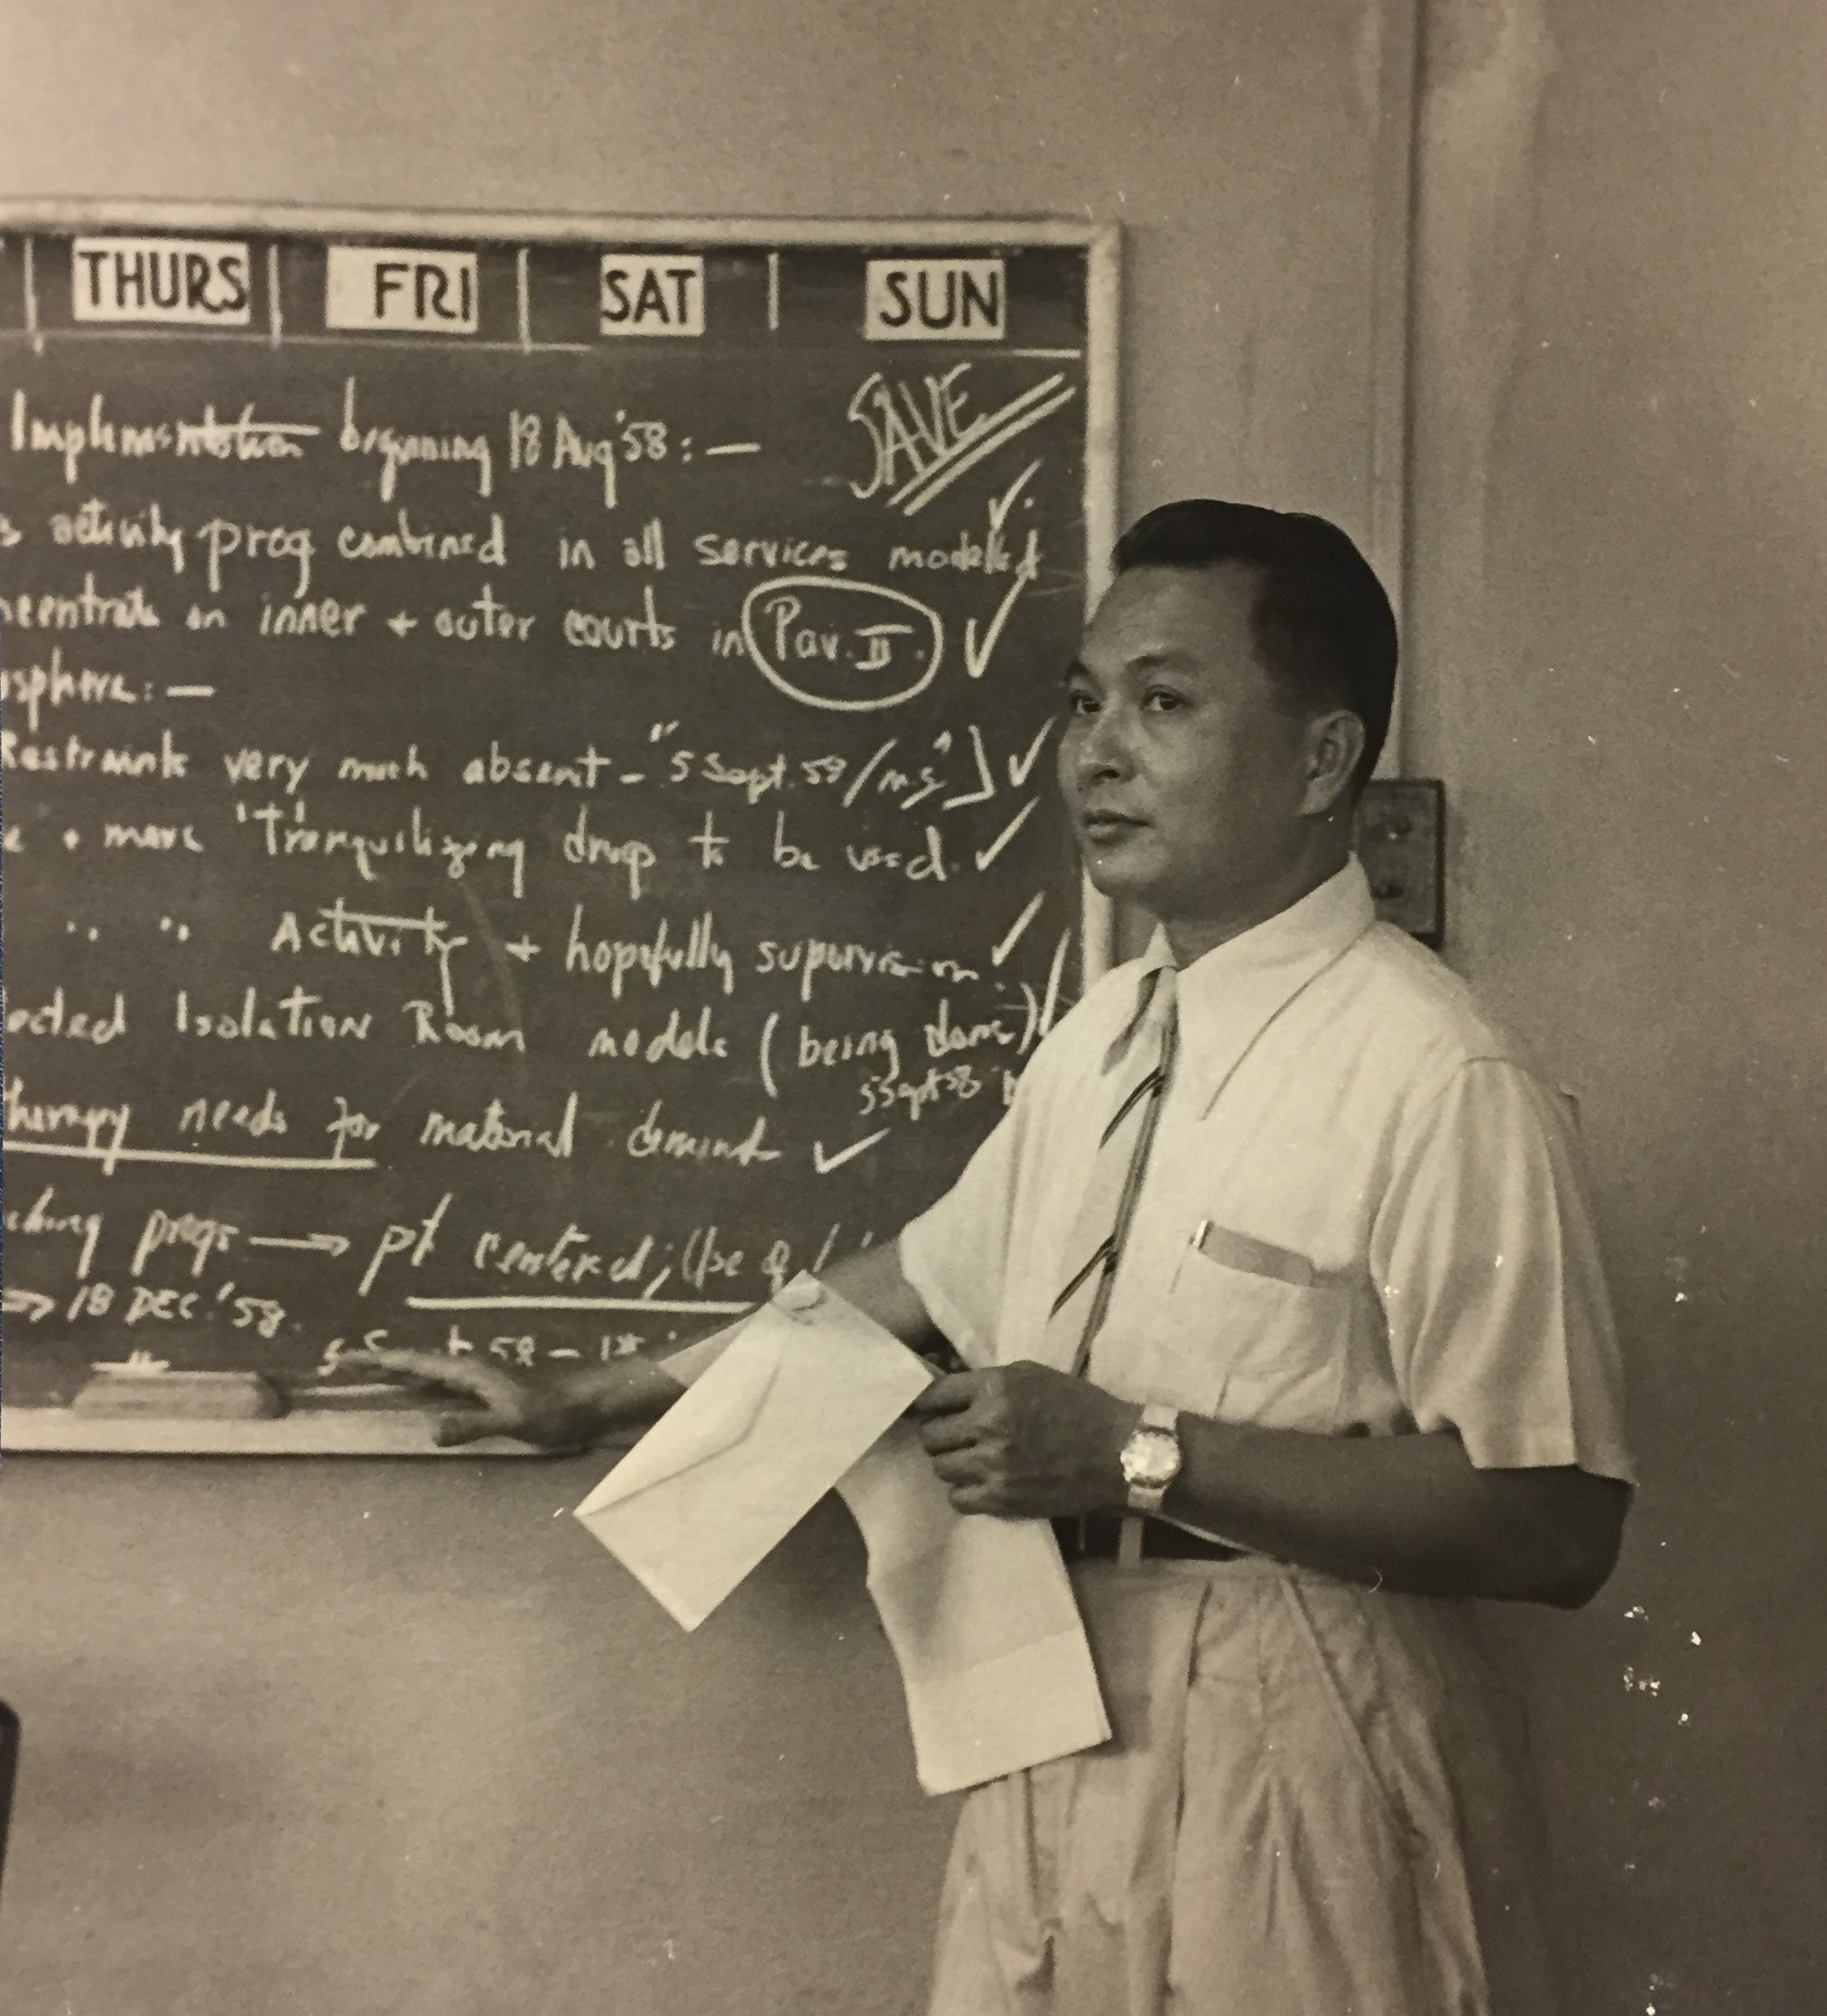 THURS FRI SAT SUN
SAVE
beginning 18 Aug '58 : —
activity prog combined in all services modelled
on inner + outer courts in Pav. II.
sphere : —
Restraints very much absent - "5 Sept. 58/
+ more 'Tranquilizing drugs to be used.
" " Activity + hopefully supervision.
Isolation Room models (being done)
5 Sept 58
therapy needs for material demand
progs → pt centered; Use of
→ 18 DEC. '58.
Sept 58 - 1st